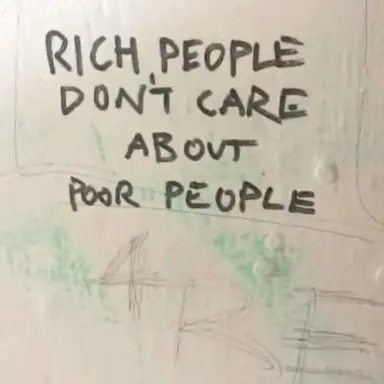 RICH PEOPLE
DON'T CARE
ABOUT
POOR PEOPLE